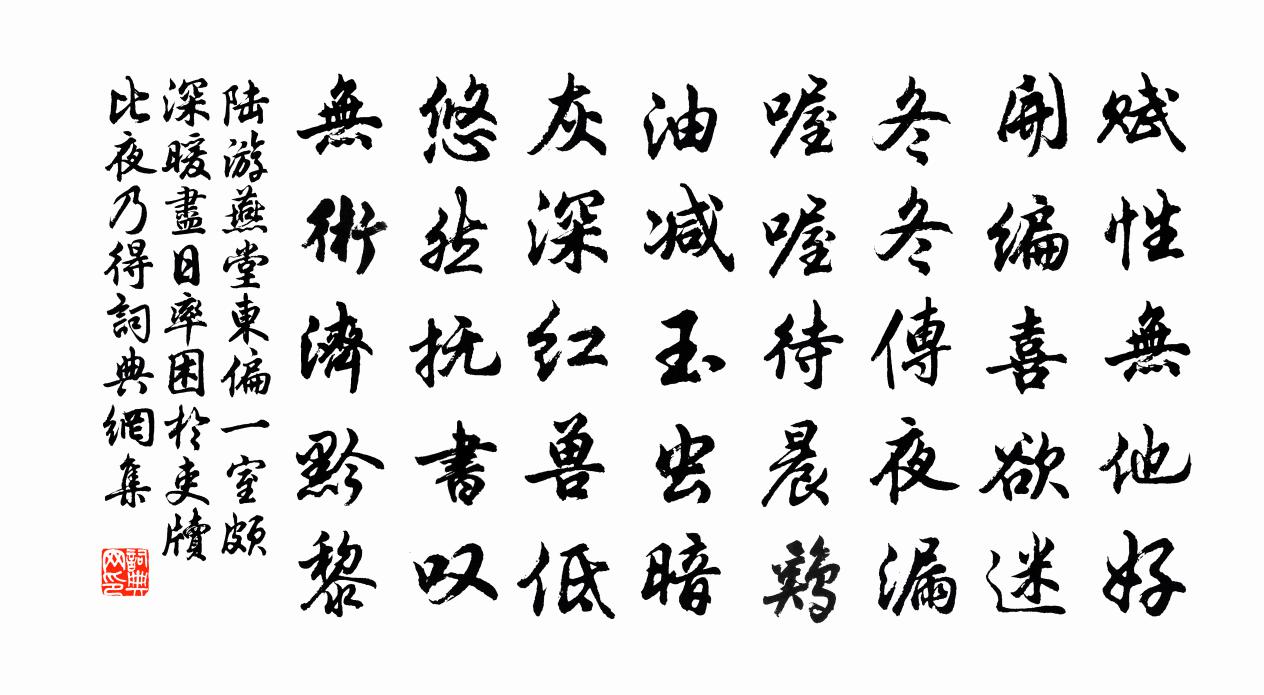 赋性無他好
開编喜欲迷
冬冬傳夜漏
喔喔待晨鷄
油减玉虫暗
灰深红兽低
悠然抚書叹
無術濟黔黎
陆游燕堂東偏一室颇
深暖盡日率困於吏牘
比夜乃得詞典網集
詞典网印